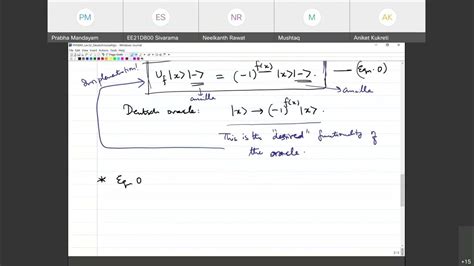 PM
ES
NR
M
AK
Prabha Mandayam
EE21D800 Sivarama
Neelkanth Rawat
Mushtaq
Aniket Kukreti
Implementation!
U_f |x>|-> = (-1)^{f(x)} |x>|->. — (Eqn. 0)
ancilla
ancilla
Deutsch oracle: |x> → (-1)^{f(x)} |x>.
This is the "desired" functionality of
the oracle.
* Eq 0
+15